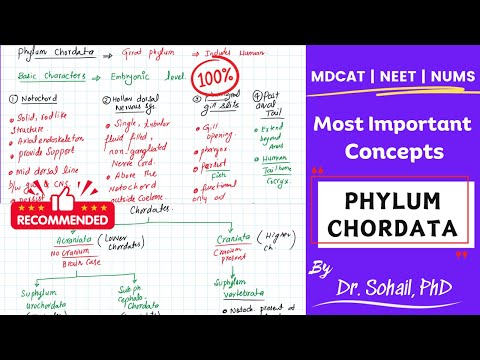 Phylum Chordata → Great phylum → Includes Human
Basic Characters → Embryonic level.
100%
① Notochord
• Solid, rod like
structure
• Axial endoskeleton
• provide Support
• Mid dorsal line
b/w gut & CNS
• persist
② Hollow dorsal
Nervous sys.
• Single, tubular
fluid filled,
non gangliated
Nerve Cord.
• Above the
Notochord
outside Coelome
gill slits
• Gill
opening.
• pharynx.
• Persist
Fish
• functional
only ad
④ Post
anal
Tail
• Extend
beyond
Anus
• Human
Tail bone
Coccyx.
RECOMMENDED
Chordates.
Acraniata (Lower
Chordates)
No Cranium
Brain Case
Craniata (Higher
Ch
Cranium
present
Subphylum
Urochordata
Sub ph.
Cephalo-
Chordata
Subphylum
Vertebrata
• Notoch. present at
MDCAT | NEET | NUMS
Most Important
Concepts
PHYLUM
CHORDATA
By
Dr. Sohail, PhD